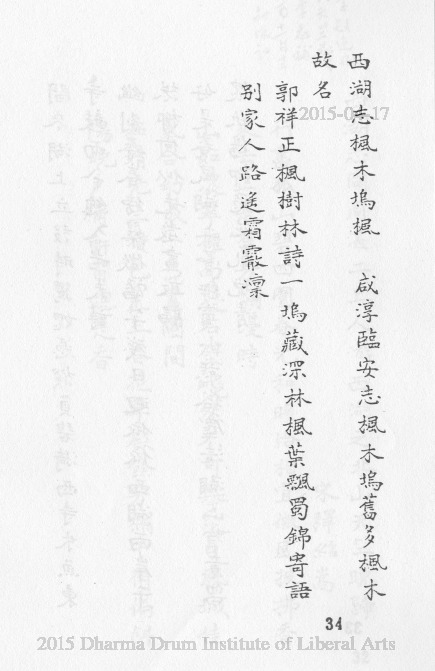 西湖志楓木塢楓　咸淳臨安志楓木塢舊多楓木
故名
郭祥正楓樹林詩一塢藏深林楓葉飄蜀錦寄語
別家人路遙霜霰凜
34
2015-04-17
2015 Dharma Drum Institute of Liberal Arts